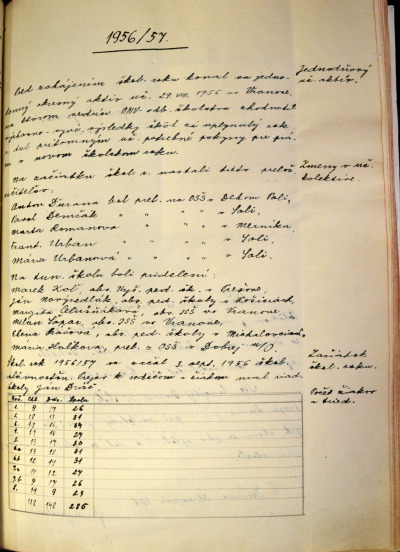 1956/57.
Pred zahájením škol. roku konal sa jedno-
denný okresný aktív uč. 29. VIII. 1956 vo Vranove,
na ktorom vedúci ONV-odb. školstva zhodnotil
výchovno-vyuč. výsledky škôl za uplynulý rok
a dal prítomným uč. potrebné pokyny pre prá-
cu v novom školskom roku.
Jednodňový
uč. aktív.
Na začiatku škol. r. nastali tieto prelož.
učiteľov:
Zmeny v uč.
kolektíve.
Anton Ďurana bol prel. na OSŠ v Dlhom Poli,
Pavol Demčák " " " " " Soli,
Marta Romanová " " " " Merníku,
Frant. Urban " " " " Soli,
Mária Urbanová " " " " Soli.
Na tun. školu boli pridelení:
Marek Kol, abs. Vyš. ped. šk. v Prešove,
Ján Novýsedlák, abs. ped. školy v Košiciach,
Margita, abs. JSŠ vo Vranove
Milan Šápar, abs. JSŠ vo Vranove,
Elena, abs. ped. školy v Michalovciach,
Mária, prel. z OSŠ v Dobrej n/O.
Škol. rok 1956/57 sa začal 3. sept. 1956 škol.
slávnosťou. Prejav k rodičom a žiakom mal riad.
školy Ján
Začiatok
škol. roku.
Počet žiakov
a tried.
Roč. Chl. Dev. Spolu
1. 9 17 26
2. 18 13 31
17
17 15
13 17 30
6a 13 18 31
6b 12 19 31
7a 15 12 27
7b 9 17 26
8. 14 9 23
138 148 286